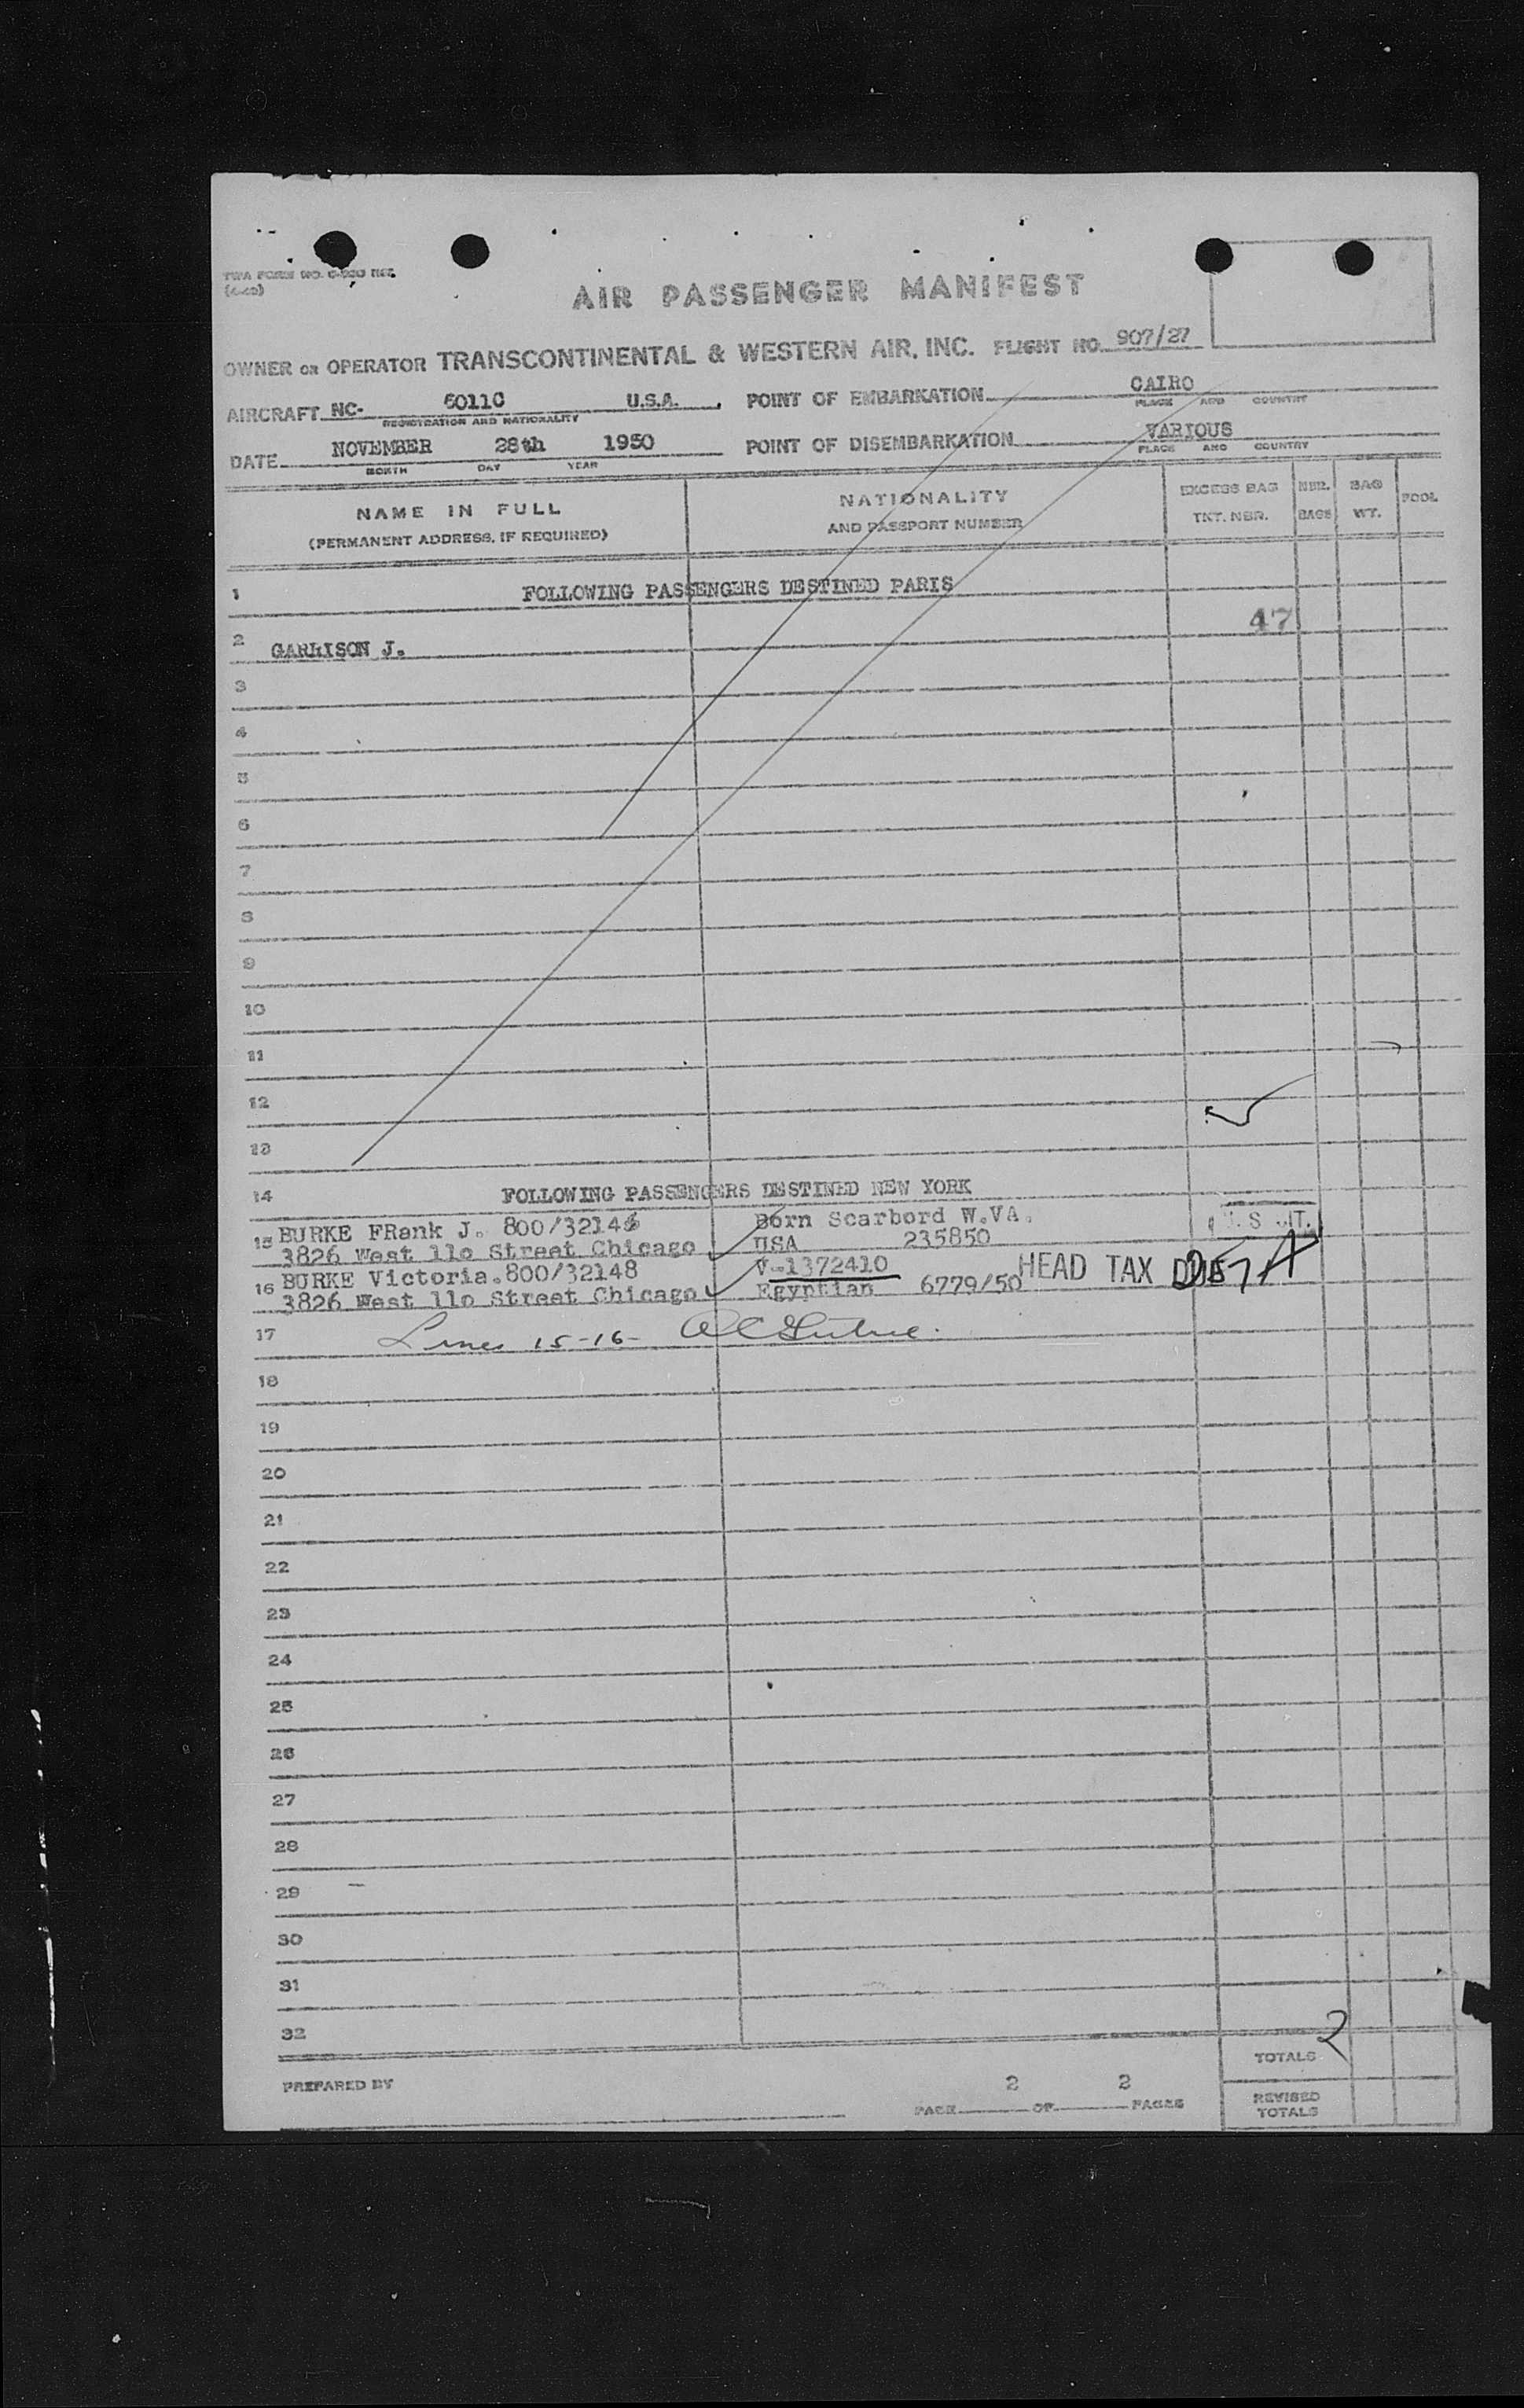 AIR PASSENGER MANIFEST
OWNER OR OPERATOR TRANSCONTINENTAL & WESTERN AIR, INC. FLIGHT NO. 907/27
AIRCRAFT NC- 60110 U.S.A. POINT OF EMBARKATION CAIRO
REGISTRATION AND NATIONALITY PLACE AND COUNTRY
DATE NOVEMBER 28th 1950 POINT OF DISEMBARKATION VARIOUS
MONTH DAY YEAR PLACE AND COUNTRY
NAME IN FULL NATIONALITY EXCESS BAG NBR. BAG POOL
(PERMANENT ADDRESS, IF REQUIRED) AND PASSPORT NUMBER TKT. NBR. BAGS WT.
1 FOLLOWING PASSENGERS DESTINED PARIS
47
2 GARRISON J.
3
4
5
6
7
8
9
10
11
12
13
14 FOLLOWING PASSENGERS DESTINED NEW YORK
15 BURKE FRank J. 800/32146 Born Scarbord W.VA.
3826 West 11o Street Chicago USA 235850
16 BURKE Victoria.800/32148 V-1372410 HEAD TAX
3826 West 11o Street Chicago Egyptian 6779/50
17 Lines 15-16-
18
19
20
21
22
23
24
25
26
27
28
29
30
31
32
2
TOTALS
PREPARED BY PAGE 2 OF 2 PAGES
REVISED
TOTALS